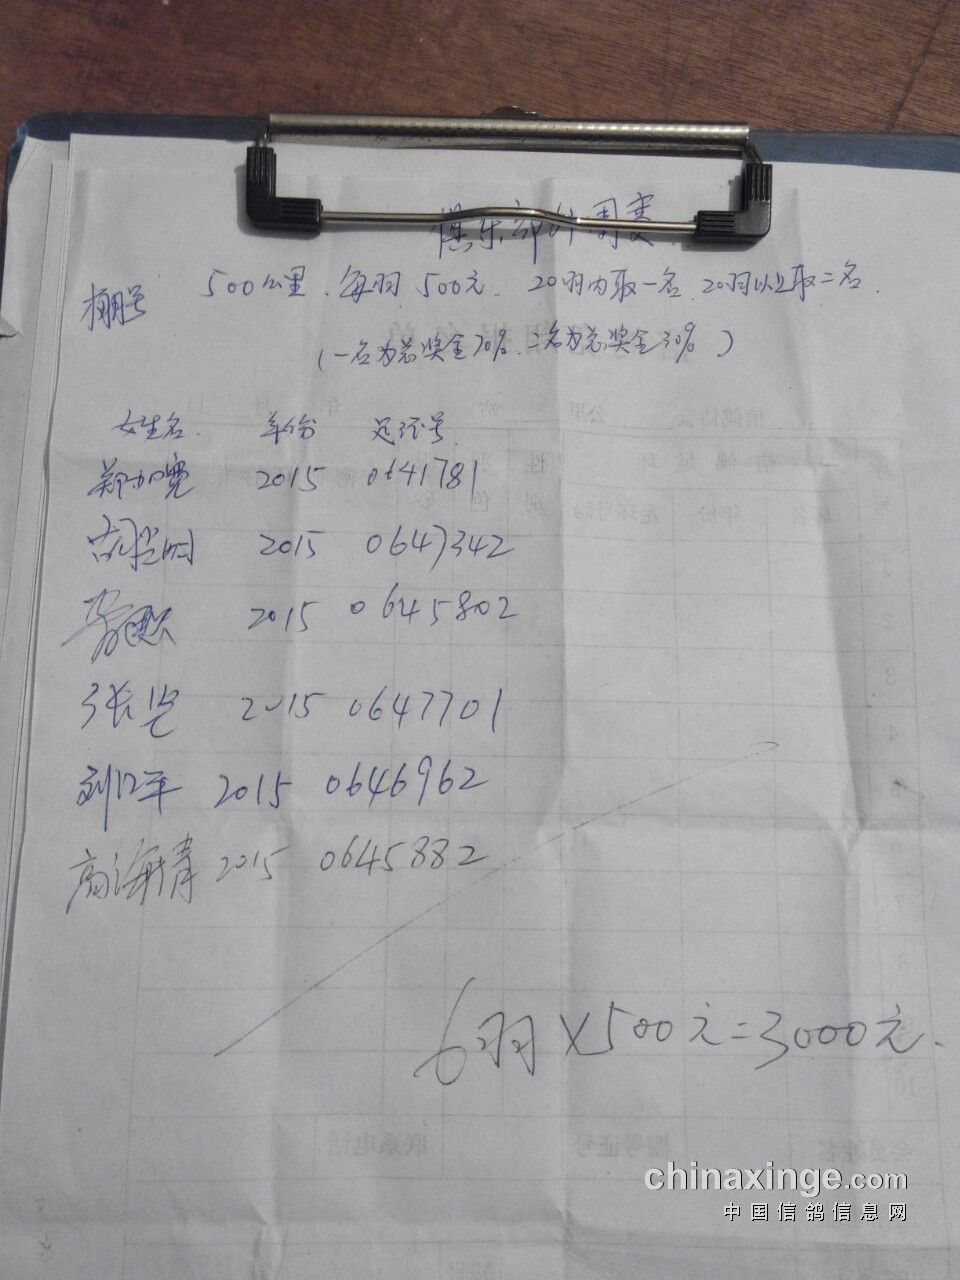 俱乐部外围赛
棚号 500公里.每羽500元. 20羽内取一名.20羽以上取二名.
(一名为总奖金70%.二名为总奖金30%)
姓名 年份 足环号
郑加宽 2015 0641781
2015 0647342
2015 0645802
张 2015 0647701
刘卫平 2015 0646962
高海青 2015 0645882
6羽×500元=3000元.
chinaxinge.com
中国信鸽信息网